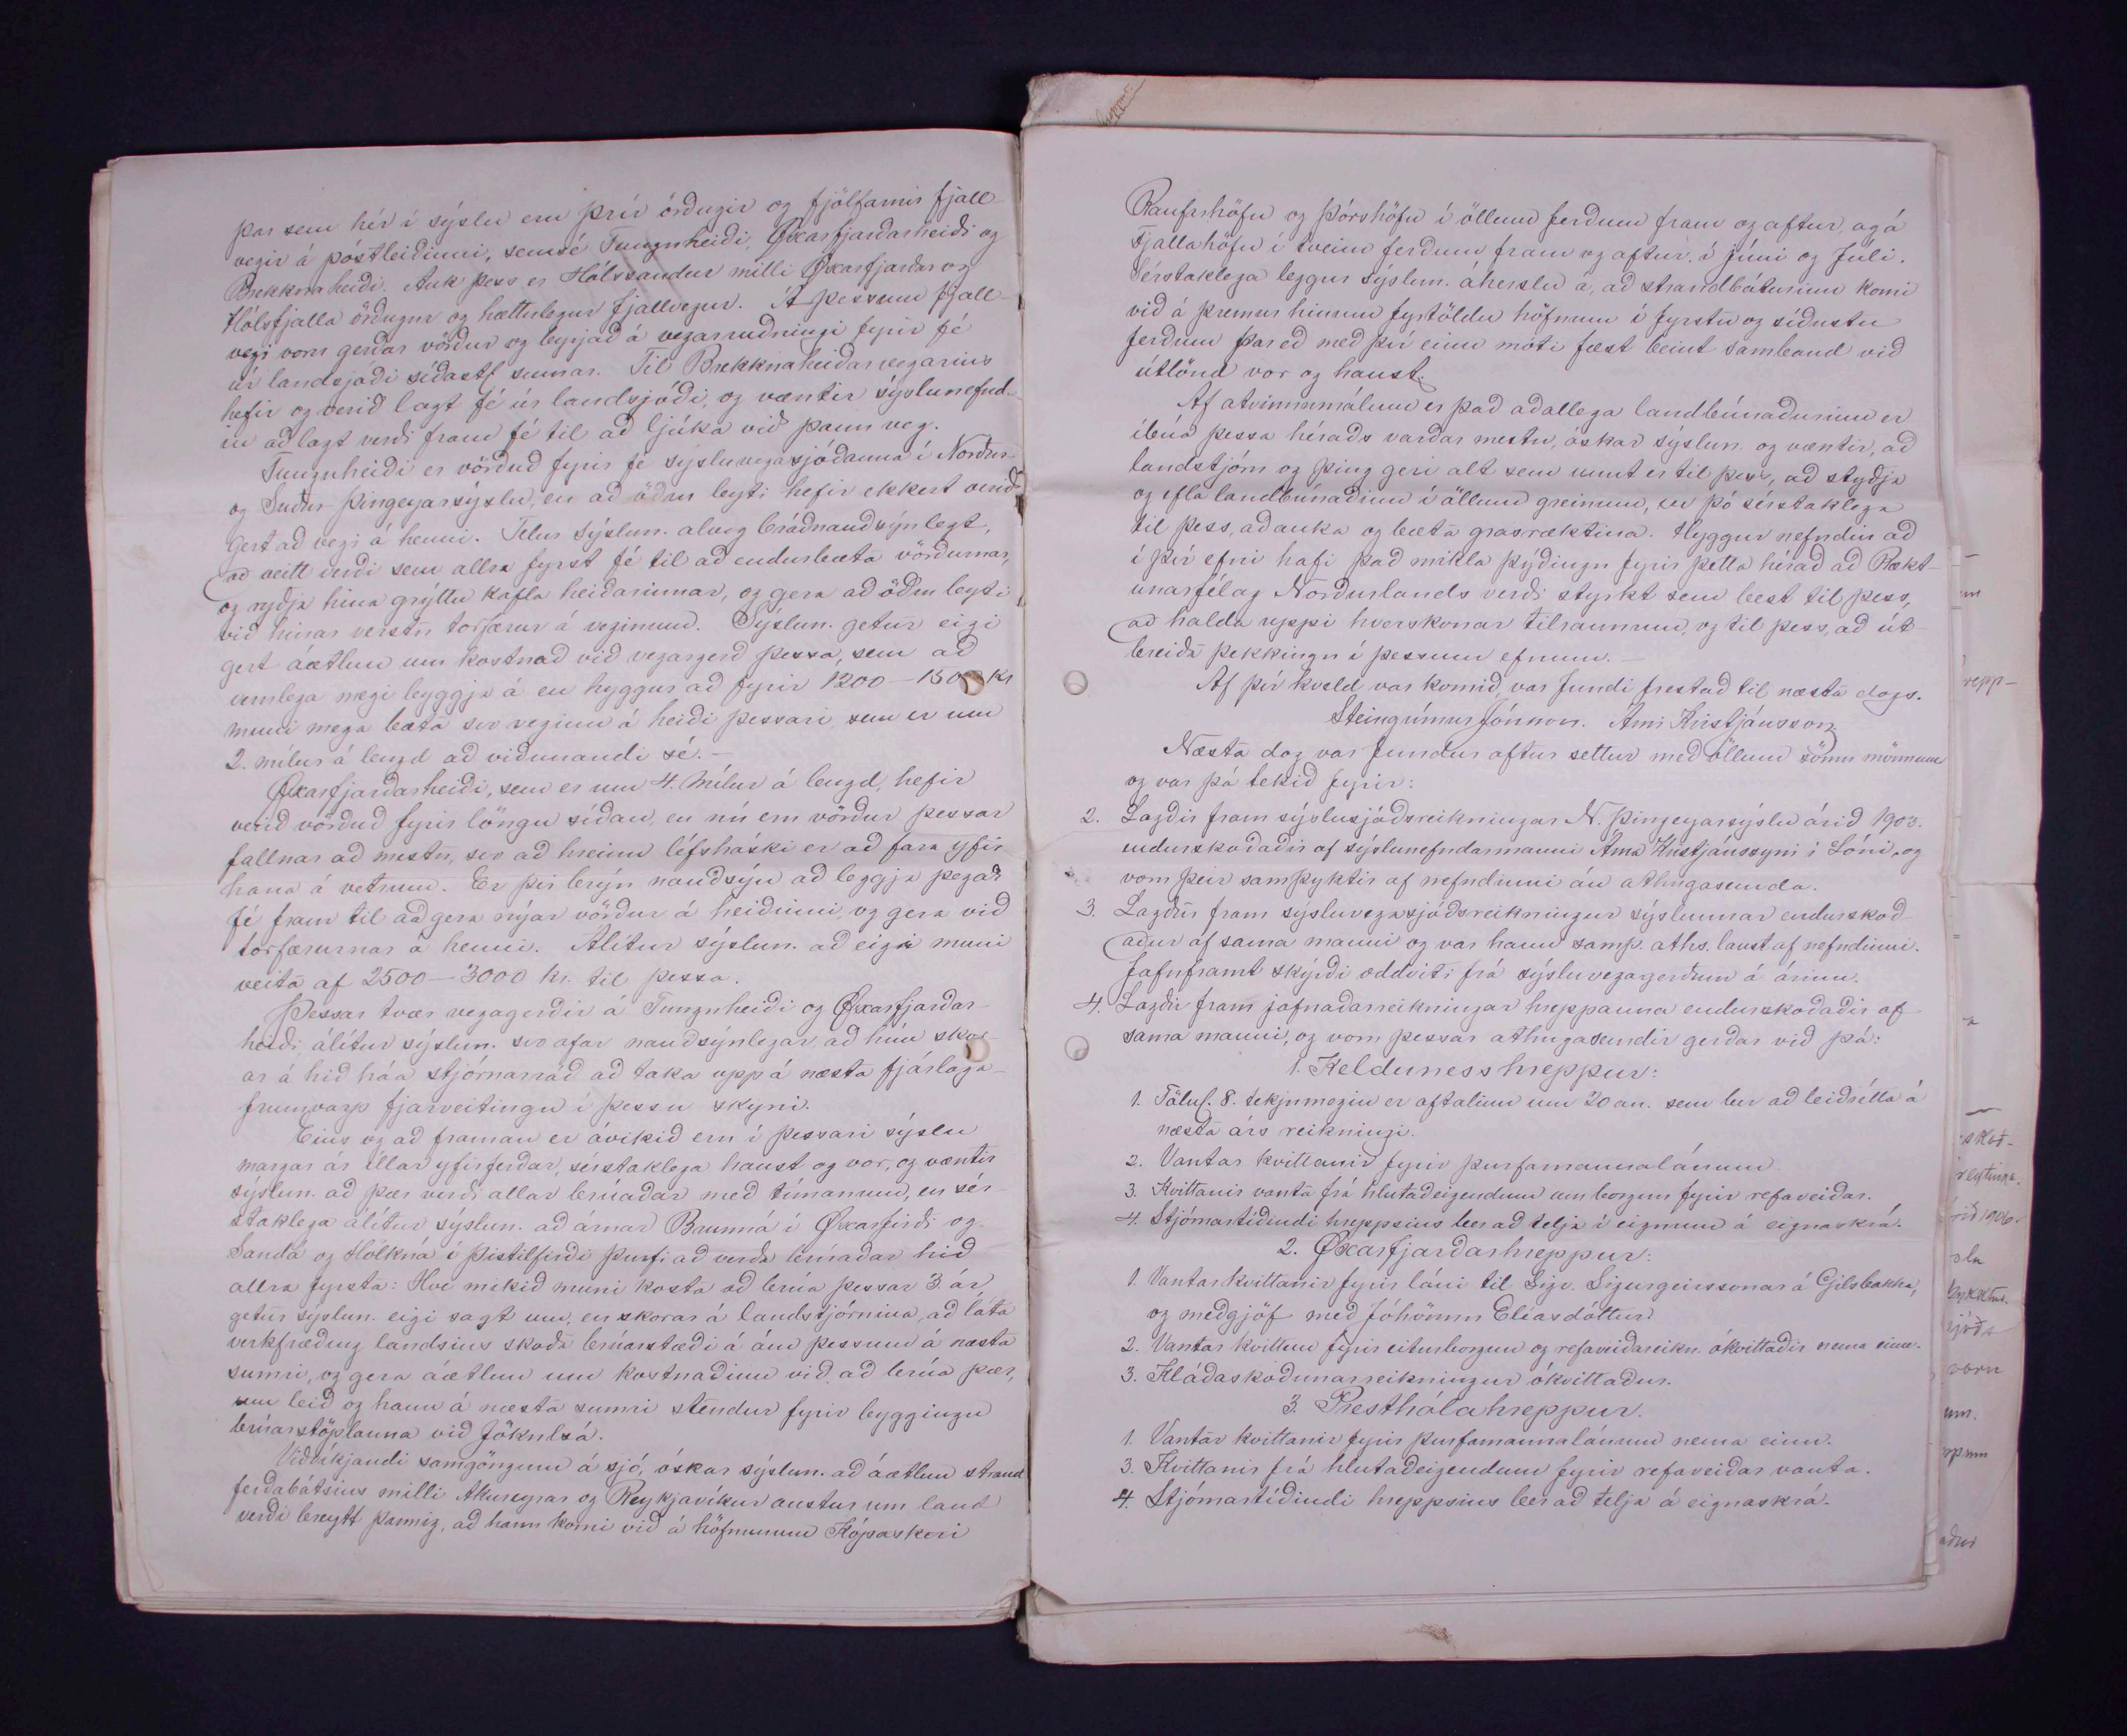 þar sem hér í sýslu eru þrír örðugir og fjölfarnir fjall-
vegir á póstleiðinni, semsé Tunguheiði, Øxarfjarðarheiði og
Brekknaheiði. Auk þess er Hólssandur milli Øxarfjarðar og
Hólsfjalla örðugur og hættulegur fjallvegur. Á þessum fjall-
vegi voru gerðar vörður og byrjað á vegarruðningi fyrir fé
úr landsjóði síðastl sumar. Til Brekknaheiðarvegarins
hefir og verið lagt fé úr landsjóði, og væntir sýslunefnd-
in að lagt verði fram fé til að ljúka við þann veg.
Tunguheiði er vörðuð fyrir fé sýsluvegasjóðanna í Norður-
og Suður-Þingeyarsýslu, en að öðru leyti hefir ekkert verið
gert að vegi á henni. Telur sýslun. alveg bráðnauðsýnlegt,
að veitt verði sem allra fyrst fé til að endurbæta vörðurnar,
og ryðja hina grýttu kafla heiðarinnar, og gera að öðru leyti
við hinar verstu torfærur á veginum. Sýslun. getur eigi
gert áætlun um kostnað við vegargerð þessa, sem að
verulega megi byggja á en hyggur að fyrir 1200-1500 kr
muni mega bæta svo veginn á heiði þessari, sem er um
2. mílur á lengd að viðunandi sé. -
Øxarfjarðarheiði, sem er um 4. mílur á lengd, hefir
verið vörðuð fyrir löngu síðan, en nú eru vörður þessar
fallnar að mestu, svo að hreinn lífsháski er að fara yfir
hana á vetrum. Er því brýn nauðsýn að leggja þegar
fé fram til að gera nýar vörður á heiðinni, og gera við
torfærurnar á henni. Álítur sýslun. að eigi muni
veita af 2500-3000 kr. til þessa.
Þessar tvær vegagerðir á Tunguheiði og Øxarfjarðar-
heiði, álítur sýslun. svo afar nauðsýnlegar, að hún skor-
ar á hið háa stjórnarráð að taka upp á næsta fjárlaga-
frumvarp fjarveitingu í þessu skyni.
Eins og að framan er ávikið eru í þessari sýslu
margar ár illar yfirferðar, sérstaklega haust og vor, og væntir
sýslun. að þær verði allar brúaðar með tímanum, en sér-
staklega álítur sýslun. að árnar Brunná í Øxarfirði og
Sandá og Hölkná í Þistilfirði þurfi að verða brúaðar hið
allra fyrsta: Hve mikið muni kosta að brúa þessar 3 ár,
getur sýslun. eigi sagt um, en skorar á landstjórnina, að láta
verkfræðing landsins skoða brúarstæði á ám þessum á næsta
sumri, og gera áætlun um kostnaðinn við að brúa þær,
um leið og hann á næsta sumri stendur fyrir byggingu
brúarstöplanna við Jökulsá.
Viðvíkjandi samgöngum á sjó, óskar sýslun. að áætlun strand
ferðabátsins milli Akureyrar og Reykjavíkur austur um land
verði breytt þannig, að hann komi við á höfnunum Kópaskeri
Raufarhöfn og Þórshöfn í öllum ferðum fram og aftur, og á
Fjallahöfn í tveim ferðum fram og aftur, í júní og Júlí.
Sérstaklega leggur sýslun. áherslu á, að strandbáturinn komi
við á þremur hinum fyrtöldu höfnum í fyrstu og síðustu
ferðum þar eð með því einu móti fæst beint samband við
útlönd vor og haust.
Af atvinnumálum er það aðallega landbúnaðurinn er
íbúa þessa héraðs varðar mestu, óskar sýslun. og væntir, að
landstjórn og þing geri alt sem unnt er til þess, að styðja
og efla landbúnaðinn í öllum greinum, en þó sérstaklega
til þess, að auka og bæta grasræktina. Hyggur nefndin að
í því efni hafi það mikla þýðingu fyrir þetta hérað að Rækt-
unarfélag Norðurlands verði styrkt sem best til þess,
að halda uppi hverskonar tilraunum, og til þess, að út-
breiða þekkingu í þessum efnum. -
Af því kveld var komið, var fundi frestað til næsta dags.
Steingrímur Jónsson. Árni Kristjánsson
Næsta dag var fundur aftur settur með öllum sömu mönnum
og var þá tekið fyrir:
2. Lagðir fram sýslusjóðsreikningar N. Þingeyarsýslu árið 1903.
endurskoðaðir af sýslunefndarmanni Árna Kristjánssyni í Lóni, og
voru þeir samþyktir af nefndinni án athugasemda.
3. Lagður fram sýsluvegasjóðsreikningur sýslunnar endurskoð-
aður af sama manni og var hann samþ. aths. laust af nefndinni.
Jafnframt skýrði oddviti frá sýsluvegagerðum á árinu.
4. Lagðir fram jafnaðarreikningar hreppanna endurskoðaðir af
sama manni, og voru þessar athugasemdir gerðar við þá:
1. Kelduneshreppur:
1. Tölul. 8. tekjumegin er oftalinn um 20 au. sem ber að leiðrétta á
næsta árs reikningi.
2. Vantar kvittanir fyrir þurfamannalánum
3. Kvittanir vanta frá hlutaðeigendum um borgun fyrir refaveiðar.
4. Stjórnartíðindi hreppsins ber að telja í eignum á eignaskrá.
2. Øxarfjarðarhreppur:
1. Vantar kvittanir fyrir láni til Sigv. Sigurgeirssonar á Gilsbakka,
og meðgjöf með Jóhönnu Elíasdóttur
2. Vantar kvittun fyrir eiturborgun og refaveiðareikn. ókvittaðir nema einn.
3. Kláðaskoðunarreikningur ókvittaður.
3. Presthólahreppur.
1. Vantar kvittanir fyrir þurfamannalánum nema einn.
3. Kvittanir frá hlutaðeigendum fyrir refaveiðar vanta.
4. Stjórnartíðindi hreppsins ber að telja á eignaskrá.